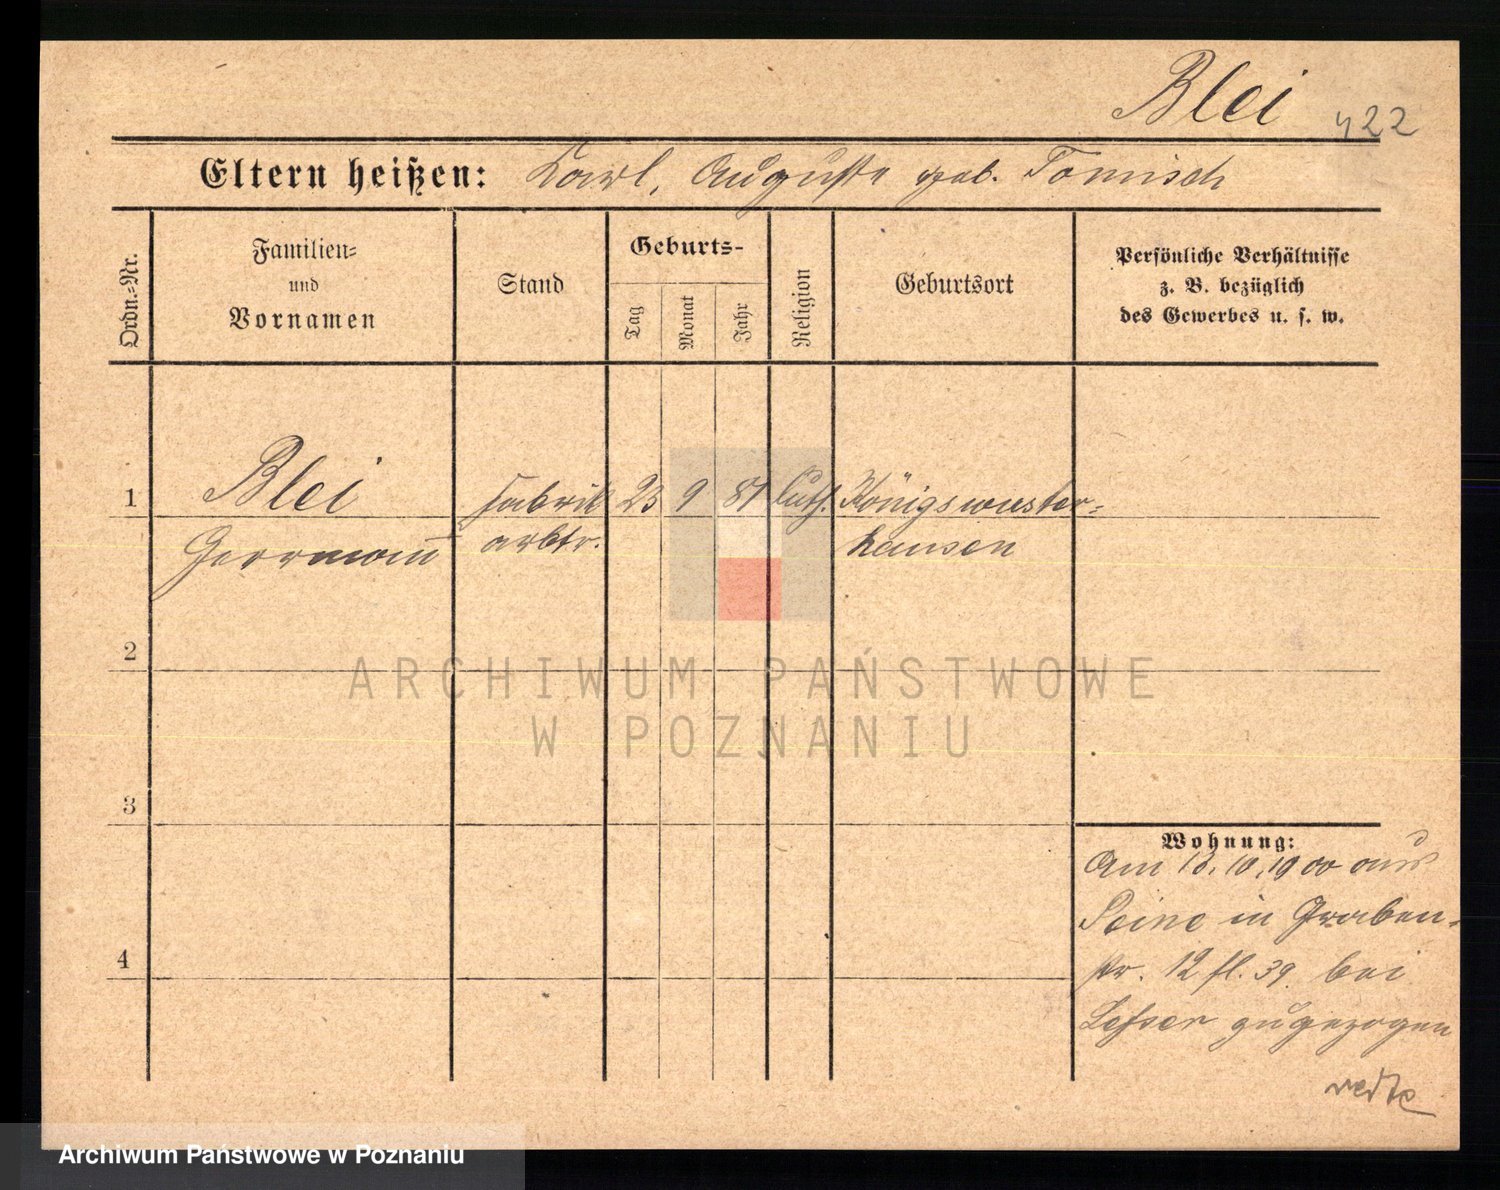 Blei
422
Eltern heißen: Karl, Auguste geb. Tomisch
Ordn.-Nr.
Familien-
und
Vornamen
Stand
Geburts-
Tag
Monat
Jahr
Religion
Geburtsort
Persönliche Verhältnisse
z. B. bezüglich
des Gewerbes u. s. w.
1 Blei Fabrik 23 9 81 Luth. Königswuster-
Herrmann arbtr. hausen
2
ARCHIWUM PAŃSTWOWE
W POZNANIU
3
Wohnung:
Am 13.10.1900 aus
Peine in Graben-
str. 12 fl. 39. bei
Lesser zugezogen
4
Archiwum Państwowe w Poznaniu